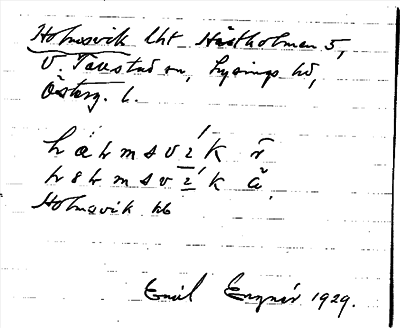 Holmsvik lht Hästholmen 5,
V. Tollstad sn, Lysings hd,
Österg. l.
h å h m s v ı́ k r̃
h 8 h m s v ı́ k ã
Holmsvik kb
Emil 1929.